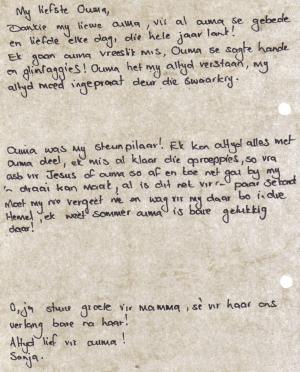 My liefste Ouma,
Dankie my liewe ouma, vir al ouma se gebede
en liefde elke dag, die hele jaar lank!
Ek gaan ouma vreeslik mis, Ouma se sagte hande
en glimlaggies! Ouma het my altyd verstaan, my
altyd moed ingepraat deur die swaarkry.
Ouma was my steunpilaar! Ek kon altyd alles met
Ouma deel, ek mis al klaar die oproeppies, so vra
asb vir Jesus of ouma so af en toe net gou by my
'n draai kan maak, al is dit net vir 'n paar sekond
Moet my nie vergeet nie en wag vir my daar bo in die
Hemel, ek weet sommer ouma is baie gelukkig
daar!
O, ja stuur groete vir mamma, sê vir haar ons
verlang baie na haar!
Altyd lief vir ouma!
Sonja.